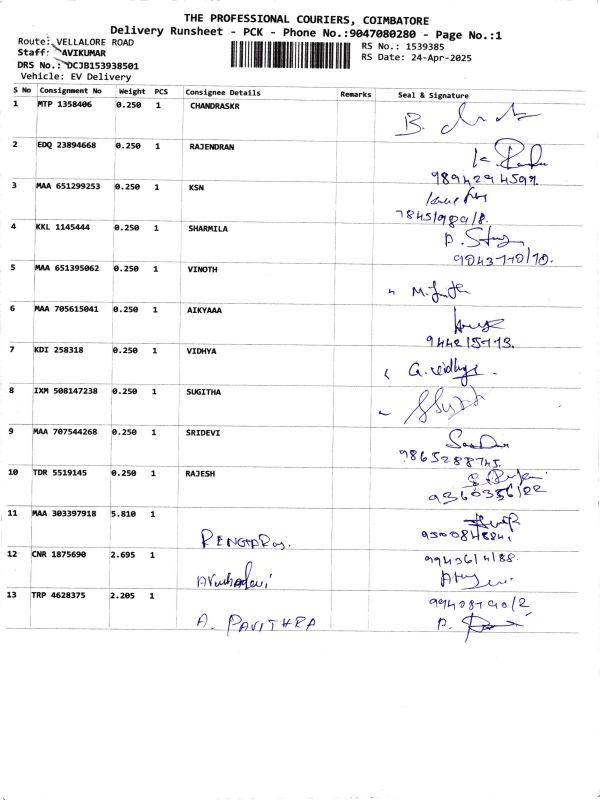 THE PROFESSIONAL COURIERS, COIMBATORE
Delivery Runsheet - PCK - Phone No.:9047080280 - Page No.:1
Route: VELLALORE ROAD
RS No.: 1539385
Staff: AVIKUMAR
RS Date: 24-Apr-2025
DRS No.: DCJB153938501
Vehicle: EV Delivery
S No Consignment No Weight PCS Consignee Details Remarks Seal & Signature
1 MTP 1358406 0.250 1 CHANDRASKR
2 EDQ 23894668 0.250 1 RAJENDRAN
9894294599
3 MAA 651299253 0.250 1 KSN
4 KKL 1145444 0.250 1 SHARMILA
5 MAA 651395062 0.250 1 VINOTH
6 MAA 705615041 0.250 1 AIKYAAA
7 KDI 258318 0.250 1 VIDHYA
G. vidhya.
8 IXM 508147238 0.250 1 SUGITHA
9 MAA 707544268 0.250 1 SRIDEVI
9865288745
10 TDR 5519145 0.250 1 RAJESH
11 MAA 303397918 5.810 1
RENGARAJ.
12 CNR 1875690 2.695 1
13 TRP 4628375 2.205 1
A. PAVITHRA